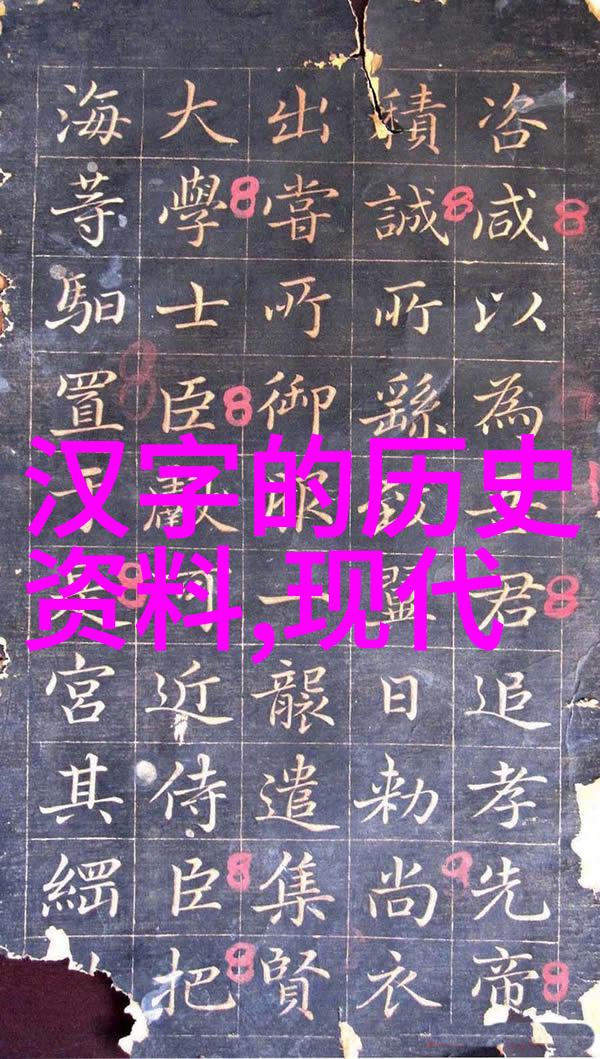 汉字的历史
资料,现代
咨咸以為君追孝先帝
積誠所繇日勅尚衣
出嘗所御服一襲遣集賢
大學士臣近侍臣把
海等馹置于宮其